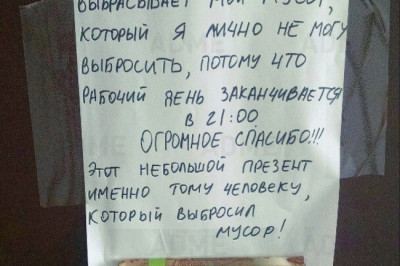 ВЫБРАСЫВАЕТ МОЙ МУСОР,
КОТОРЫЙ Я ЛИЧНО НЕ МОГУ
ВЫБРОСИТЬ, ПОТОМУ ЧТО
РАБОЧИЙ ДЕНЬ ЗАКАНЧИВАЕТСЯ
В 21:00.
ОГРОМНОЕ СПАСИБО!!!
ЭТОТ НЕБОЛЬШОЙ ПРЕЗЕНТ
ИМЕННО ТОМУ ЧЕЛОВЕКУ,
КОТОРЫЙ ВЫБРОСИЛ
МУСОР!